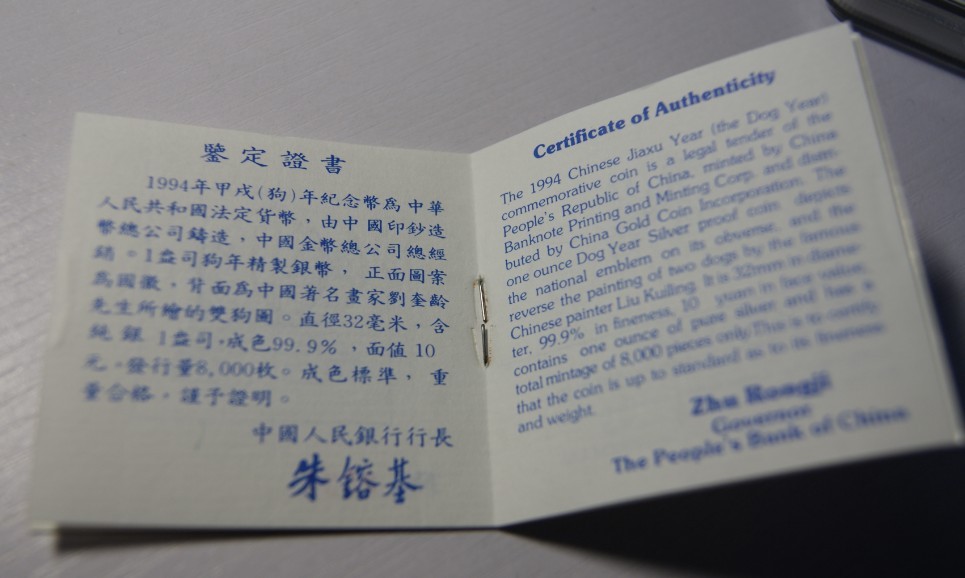 鑒定證書
1994年甲戌(狗)年紀念幣為中華
人民共和國法定貨幣，由中國印鈔造
幣總公司鑄造，中國金幣總公司總經
銷。1盎司狗年精製銀幣， 正面圖案
為國徽，背面為中國著名畫家劉奎齡
先生所繪的雙狗圖。直徑32毫米，含
純 銀 1盎司，成色99.9%，面值 10
元。發行量8,000枚。成色標準， 重
量合格。謹予證明。
中國人民銀行行長
朱鎔基
Certificate of Authenticity
The 1994 Chinese Jiaxu Year (the Dog Year)
commemorative coin is a legal tender of the
People's Republic of China, minted by China
Banknote Printing and Minting Corp. and distri-
buted by China Gold Coin Incorporation. The
one ounce Dog Year Silver proof coin depicts
the national emblem on its obverse, and the
reverse the painting of two dogs by the famous
Chinese painter Liu Kuiling. It is 32mm in diame-
ter, 99.9% in fineness, 10 yuan in face value,
contains one ounce of pure silver and has a
total mintage of 8,000 pieces only. This is to certify
that the coin is up to standard as to its fineness
and weight.
Zhu Rongji
Governor
The People's Bank of China